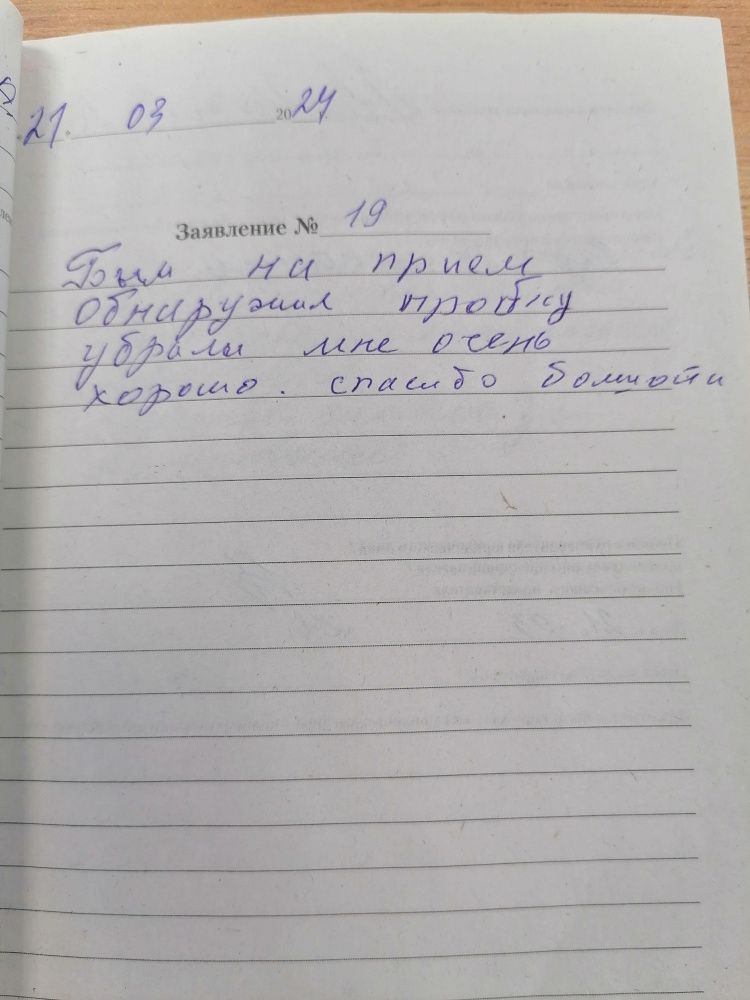 21. 03 2024
Заявление № 19
Был на прием
обнаружил пробку
убрали мне очень
хорошо. спасибо